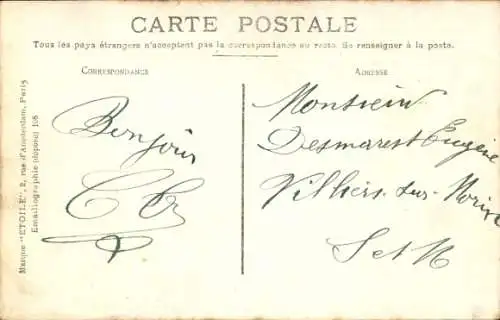 CARTE POSTALE
Tous les pays étrangers n'acceptent pas la correspondance au recto. Se renseigner à la poste.
CORRESPONDANCE
ADRESSE
Bonjour
Monsieur
Desmarest Eugène
Villiers-sur-Morin
S et M
Marque "ETOILE", 2, rue d'Amsterdam, Paris
Emailographie (déposé) 106